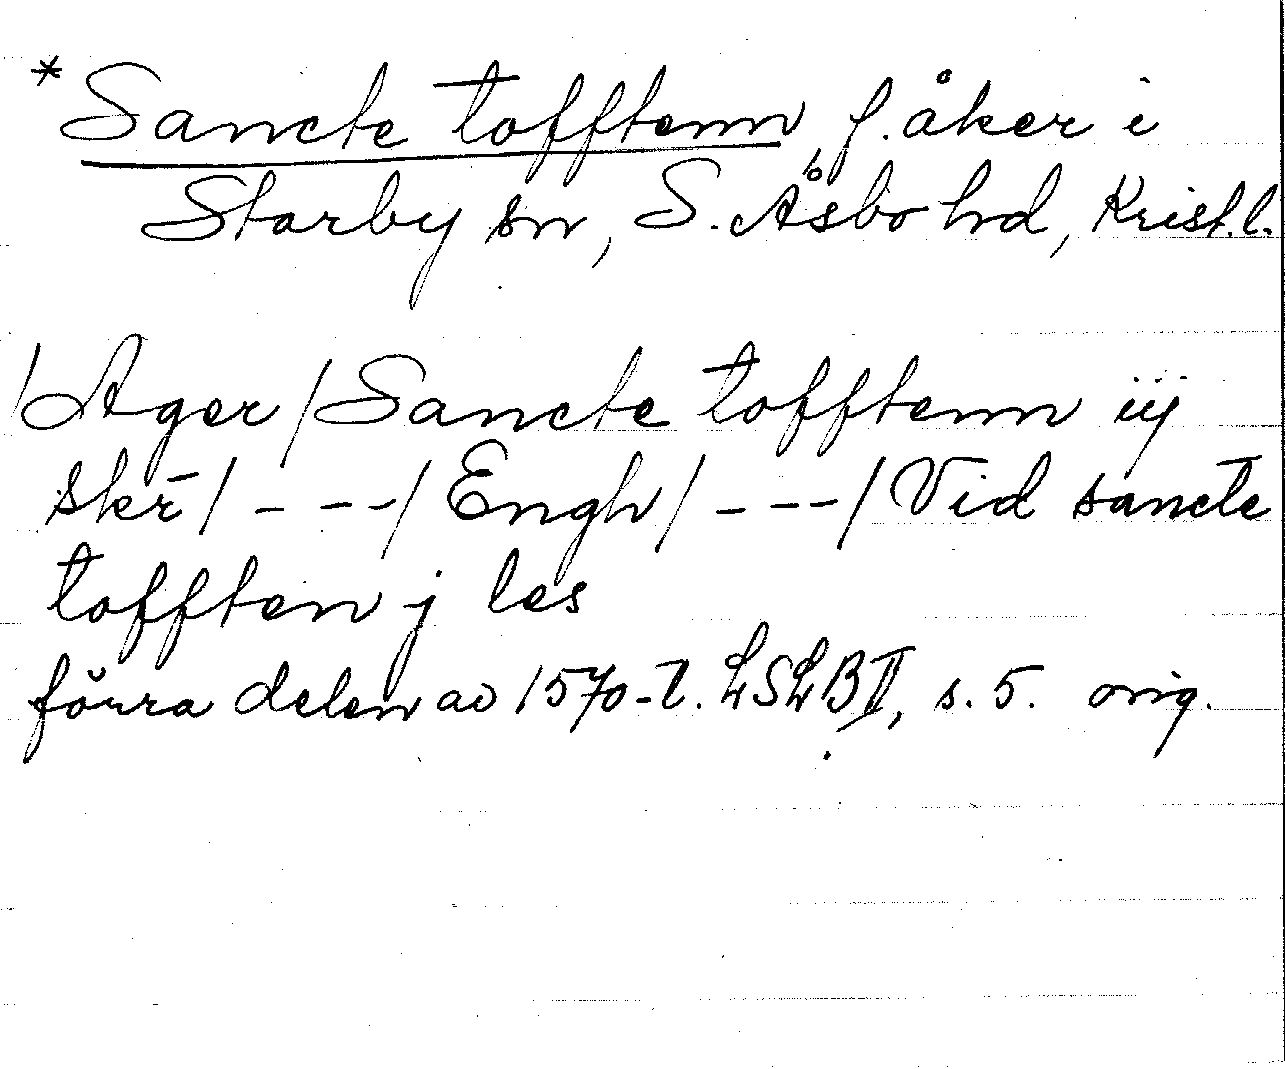 *Sancte tofftenn, f. åker i
Starby sn, S. Åsbo hd, Krist.l.
/Ager/Sancte tofftenn iij
skr̄/ - - -/Engh/ - - -/Vid sancte
tofften j les
förra delen av 1570-t. LSLB II, s. 5. orig.